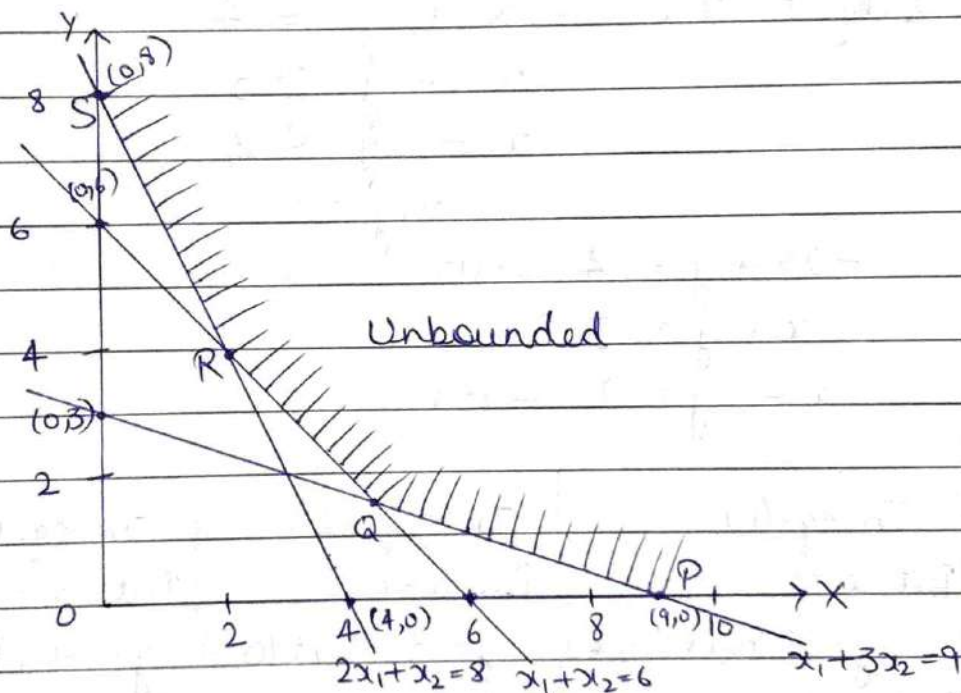 Y
(0,8)
8
S
(0,6)
6
Unbounded
4
R
(0,3)
2
Q
P
0
2
4
(4,0)
6
8
(9,0)
10
X
2x₁+x₂=8
x₁+x₂=6
x₁+3x₂=9